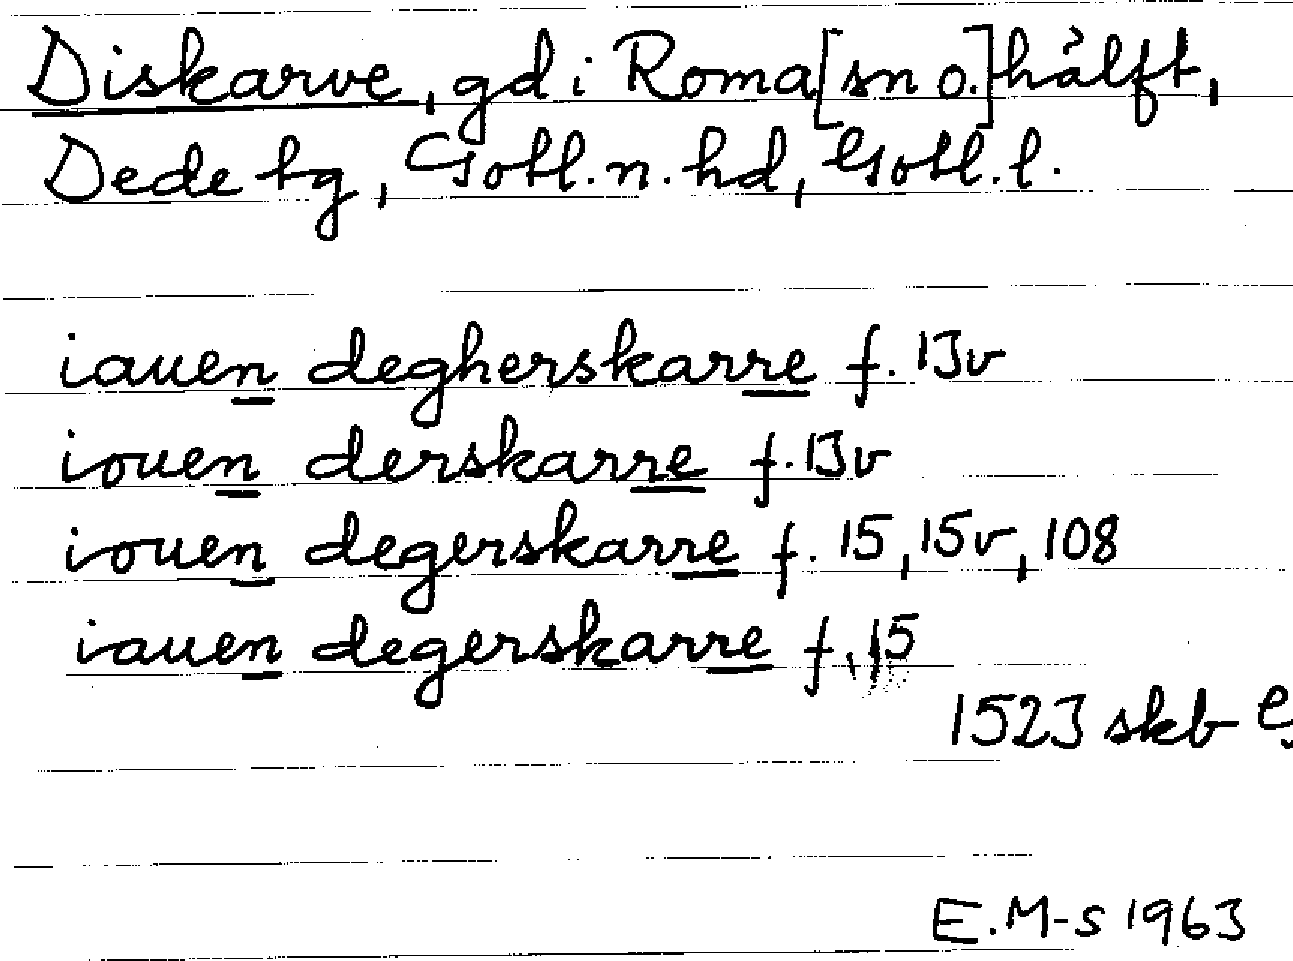 Diskarve, gd i Roma [sn o.] hälft,
Dede tg, Gotl. n. hd, Gotl. l.
iauen degherskarre f. 13v
iouen derskarre f. 13v
iouen degerskarre f. 15, 15v, 108
iauen degerskarre f. 15
1523 skb
E. M-S 1963